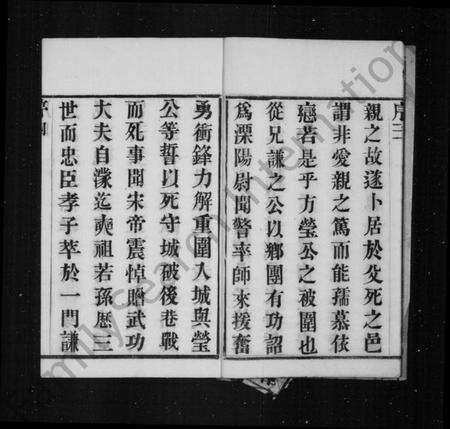 序三
親之故遂卜居於父死之邑
謂非愛親之篤而能孺慕依
戀若是乎方瑩公之被圍也
從兄謙之公以鄉團有功詔
爲溧陽尉聞警率師來援奮
勇衝鋒力解重圍入城與瑩
公等誓以死守城破後巷戰
而死事聞宋帝震悼贈武功
大夫自濠迄奭祖若孫歴三
世而忠臣孝子萃於一門謙
序四
FamilySearch International